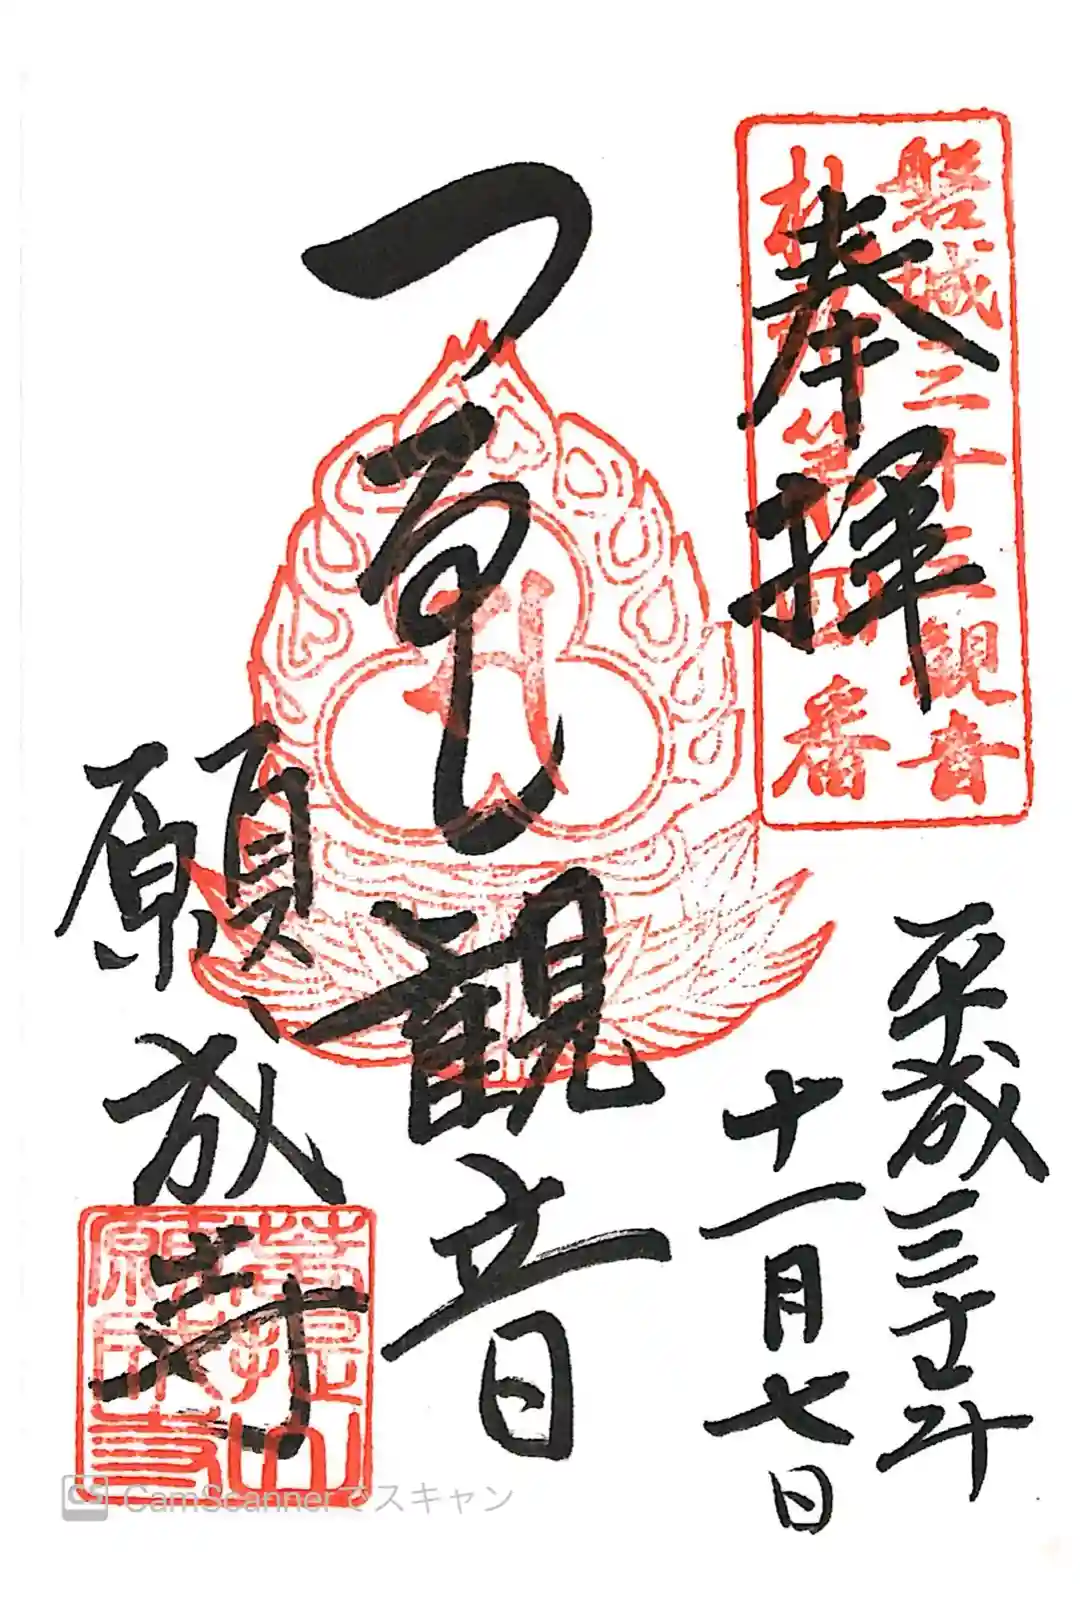 磐城三十三観音
札所第四番
奉拝
平成三十年
十一月七日
つるし観音
願成寺
菩提山
願成寺
CS CamScannerでスキャン